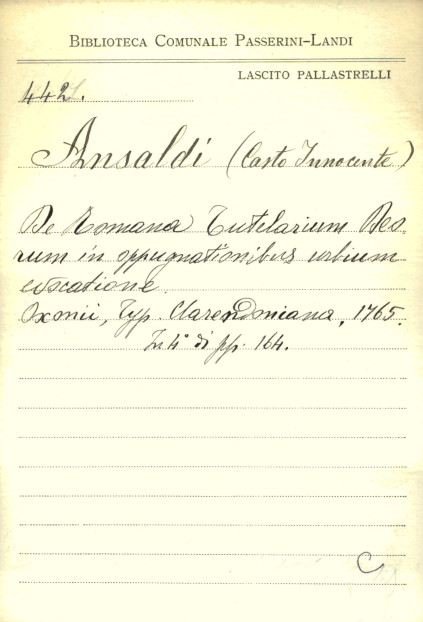 BIBLIOTECA COMUNALE PASSERINI-LANDI
LASCITO PALLASTRELLI
442.
Ansaldi (Casto Innocente)
De Romana Tutelarium Deo-
rum in oppugnationibus urbium
evocatione.
Oxonii, Typ. Clarendoniana, 1765.
In 4° di pp. 164.
C